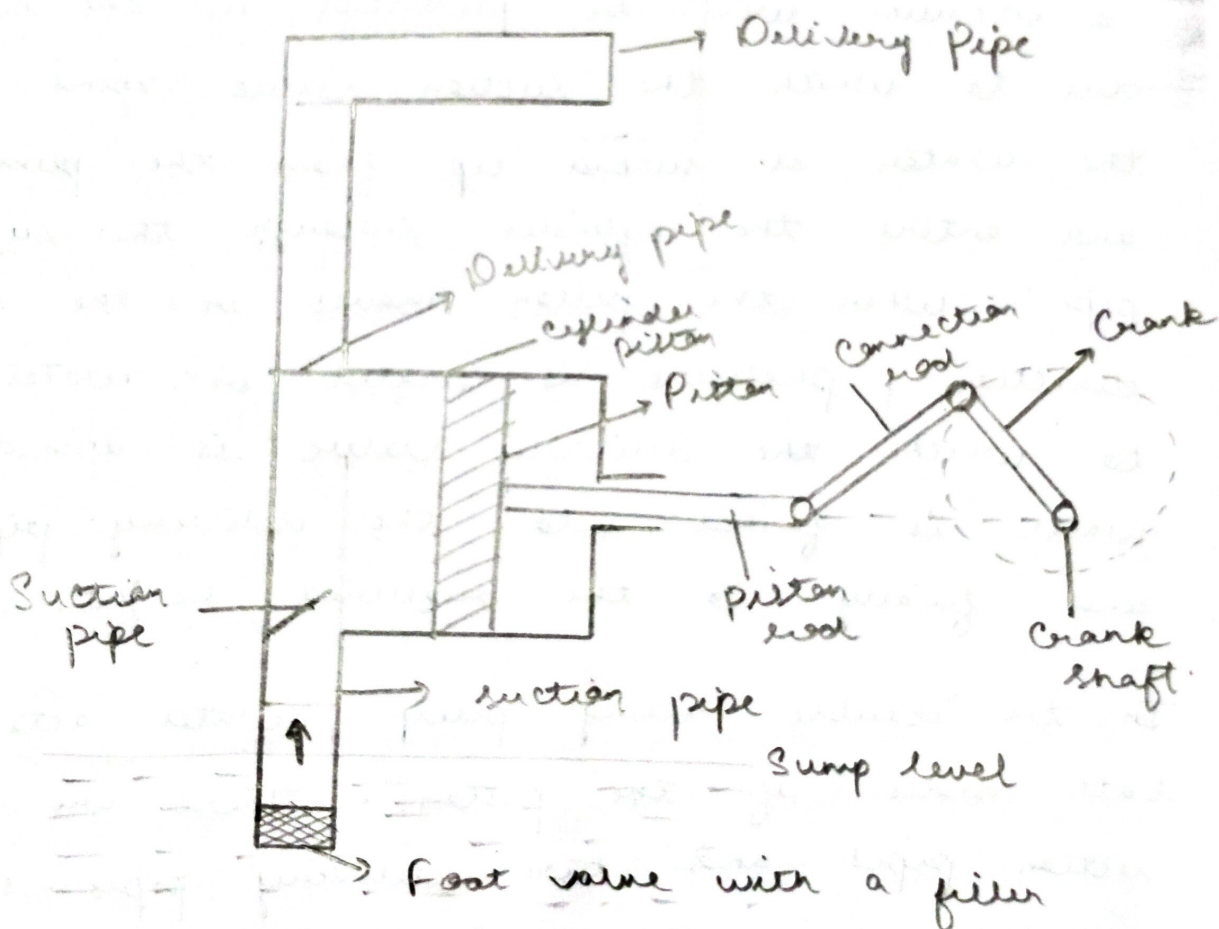 Delivery Pipe
Delivery pipe
cylinder
piston
Piston
Connection
rod
Crank
Suction
pipe
piston
rod
Crank
shaft.
suction pipe
Sump level
Foot valve with a filler